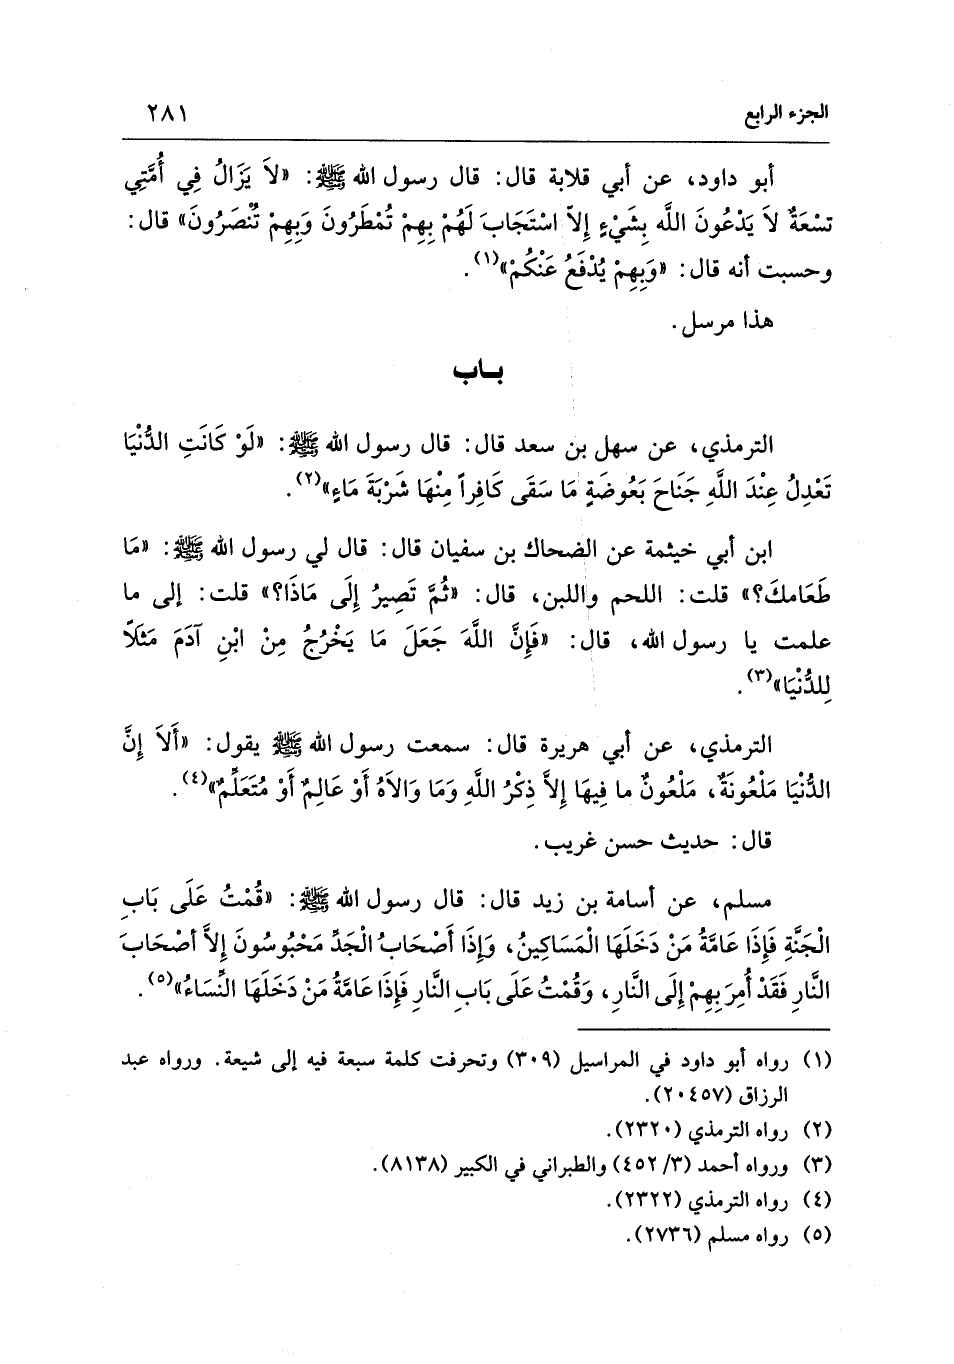 الجزء الرابع ٢٨١
أبو داود، عن أبي قلابة قال: قال رسول الله ﷺ: «لاَ يَزَالُ فِي أُمَّتِي
تسْعَةٌ لاَ يَدْعُونَ اللَّه بِشَيْءٍ إِلاّ اسْتَجَابَ لَهُمْ بِهِمْ تُمْطَرُونَ وَبِهِمْ تُنْصَرُونَ» قال:
وحسبت أنه قال: «وَبِهِمْ يُدْفَعُ عَنْكُمْ»(١).
هذا مرسل.
بــاب
الترمذي، عن سهل بن سعد قال: قال رسول الله ﷺ: «لَوْ كَانَتِ الدُّنْيَا
تَعْدِلُ عِنْدَ اللَّهِ جَنَاحَ بَعُوضَةٍ مَا سَقَى كَافِراً مِنْهَا شَرْبَةَ مَاءٍ»(٢).
ابن أبي خيثمة عن الضحاك بن سفيان قال: قال لي رسول الله ﷺ: «مَا
طَعَامكَ؟» قلت: اللحم واللبن، قال: «ثُمَّ تَصِيرُ إِلَى مَاذَا؟» قلت: إلى ما
علمت يا رسول الله، قال: «فَإِنَّ اللَّهَ جَعَلَ مَا يَخْرُجُ مِنْ ابْنِ آدَمَ مَثَلاً
لِلدُّنْيَا»(٣).
الترمذي، عن أبي هريرة قال: سمعت رسول الله ﷺ يقول: «أَلاَ إِنَّ
الدُّنْيَا مَلْعُونَةٌ، مَلْعُونٌ ما فِيهَا إِلاَّ ذِكْرُ اللَّهِ وَمَا وَالاَهُ أَوْ عَالِمٌ أَوْ مُتَعَلِّمٌ»(٤).
قال: حديث حسن غريب.
مسلم، عن أسامة بن زيد قال: قال رسول الله ﷺ: «قُمْتُ عَلَى بَابِ
الْجَنَّةِ فَإِذَا عَامَّةُ مَنْ دَخَلَهَا الْمَسَاكِينُ، وَإِذَا أَصْحَابُ الْجَدِّ مَحْبُوسُونَ إِلاَّ أصْحَابَ
النَّارِ فَقَدْ أُمِرَ بِهِمْ إِلَى النَّارِ، وَقُمْتُ عَلَى بَابِ النَّارِ فَإِذَا عَامَّةُ مَنْ دَخَلَهَا النِّسَاءُ»(٥).
(١) رواه أبو داود في المراسيل (٣٠٩) وتحرفت كلمة سبعة فيه إلى شيعة. ورواه عبد
الرزاق (٢٠٤٥٧).
(٢) رواه الترمذي (٢٣٢٠).
(٣) ورواه أحمد (٣/ ٤٥٢) والطبراني في الكبير (٨١٣٨).
(٤) رواه الترمذي (٢٣٢٢).
(٥) رواه مسلم (٢٧٣٦).